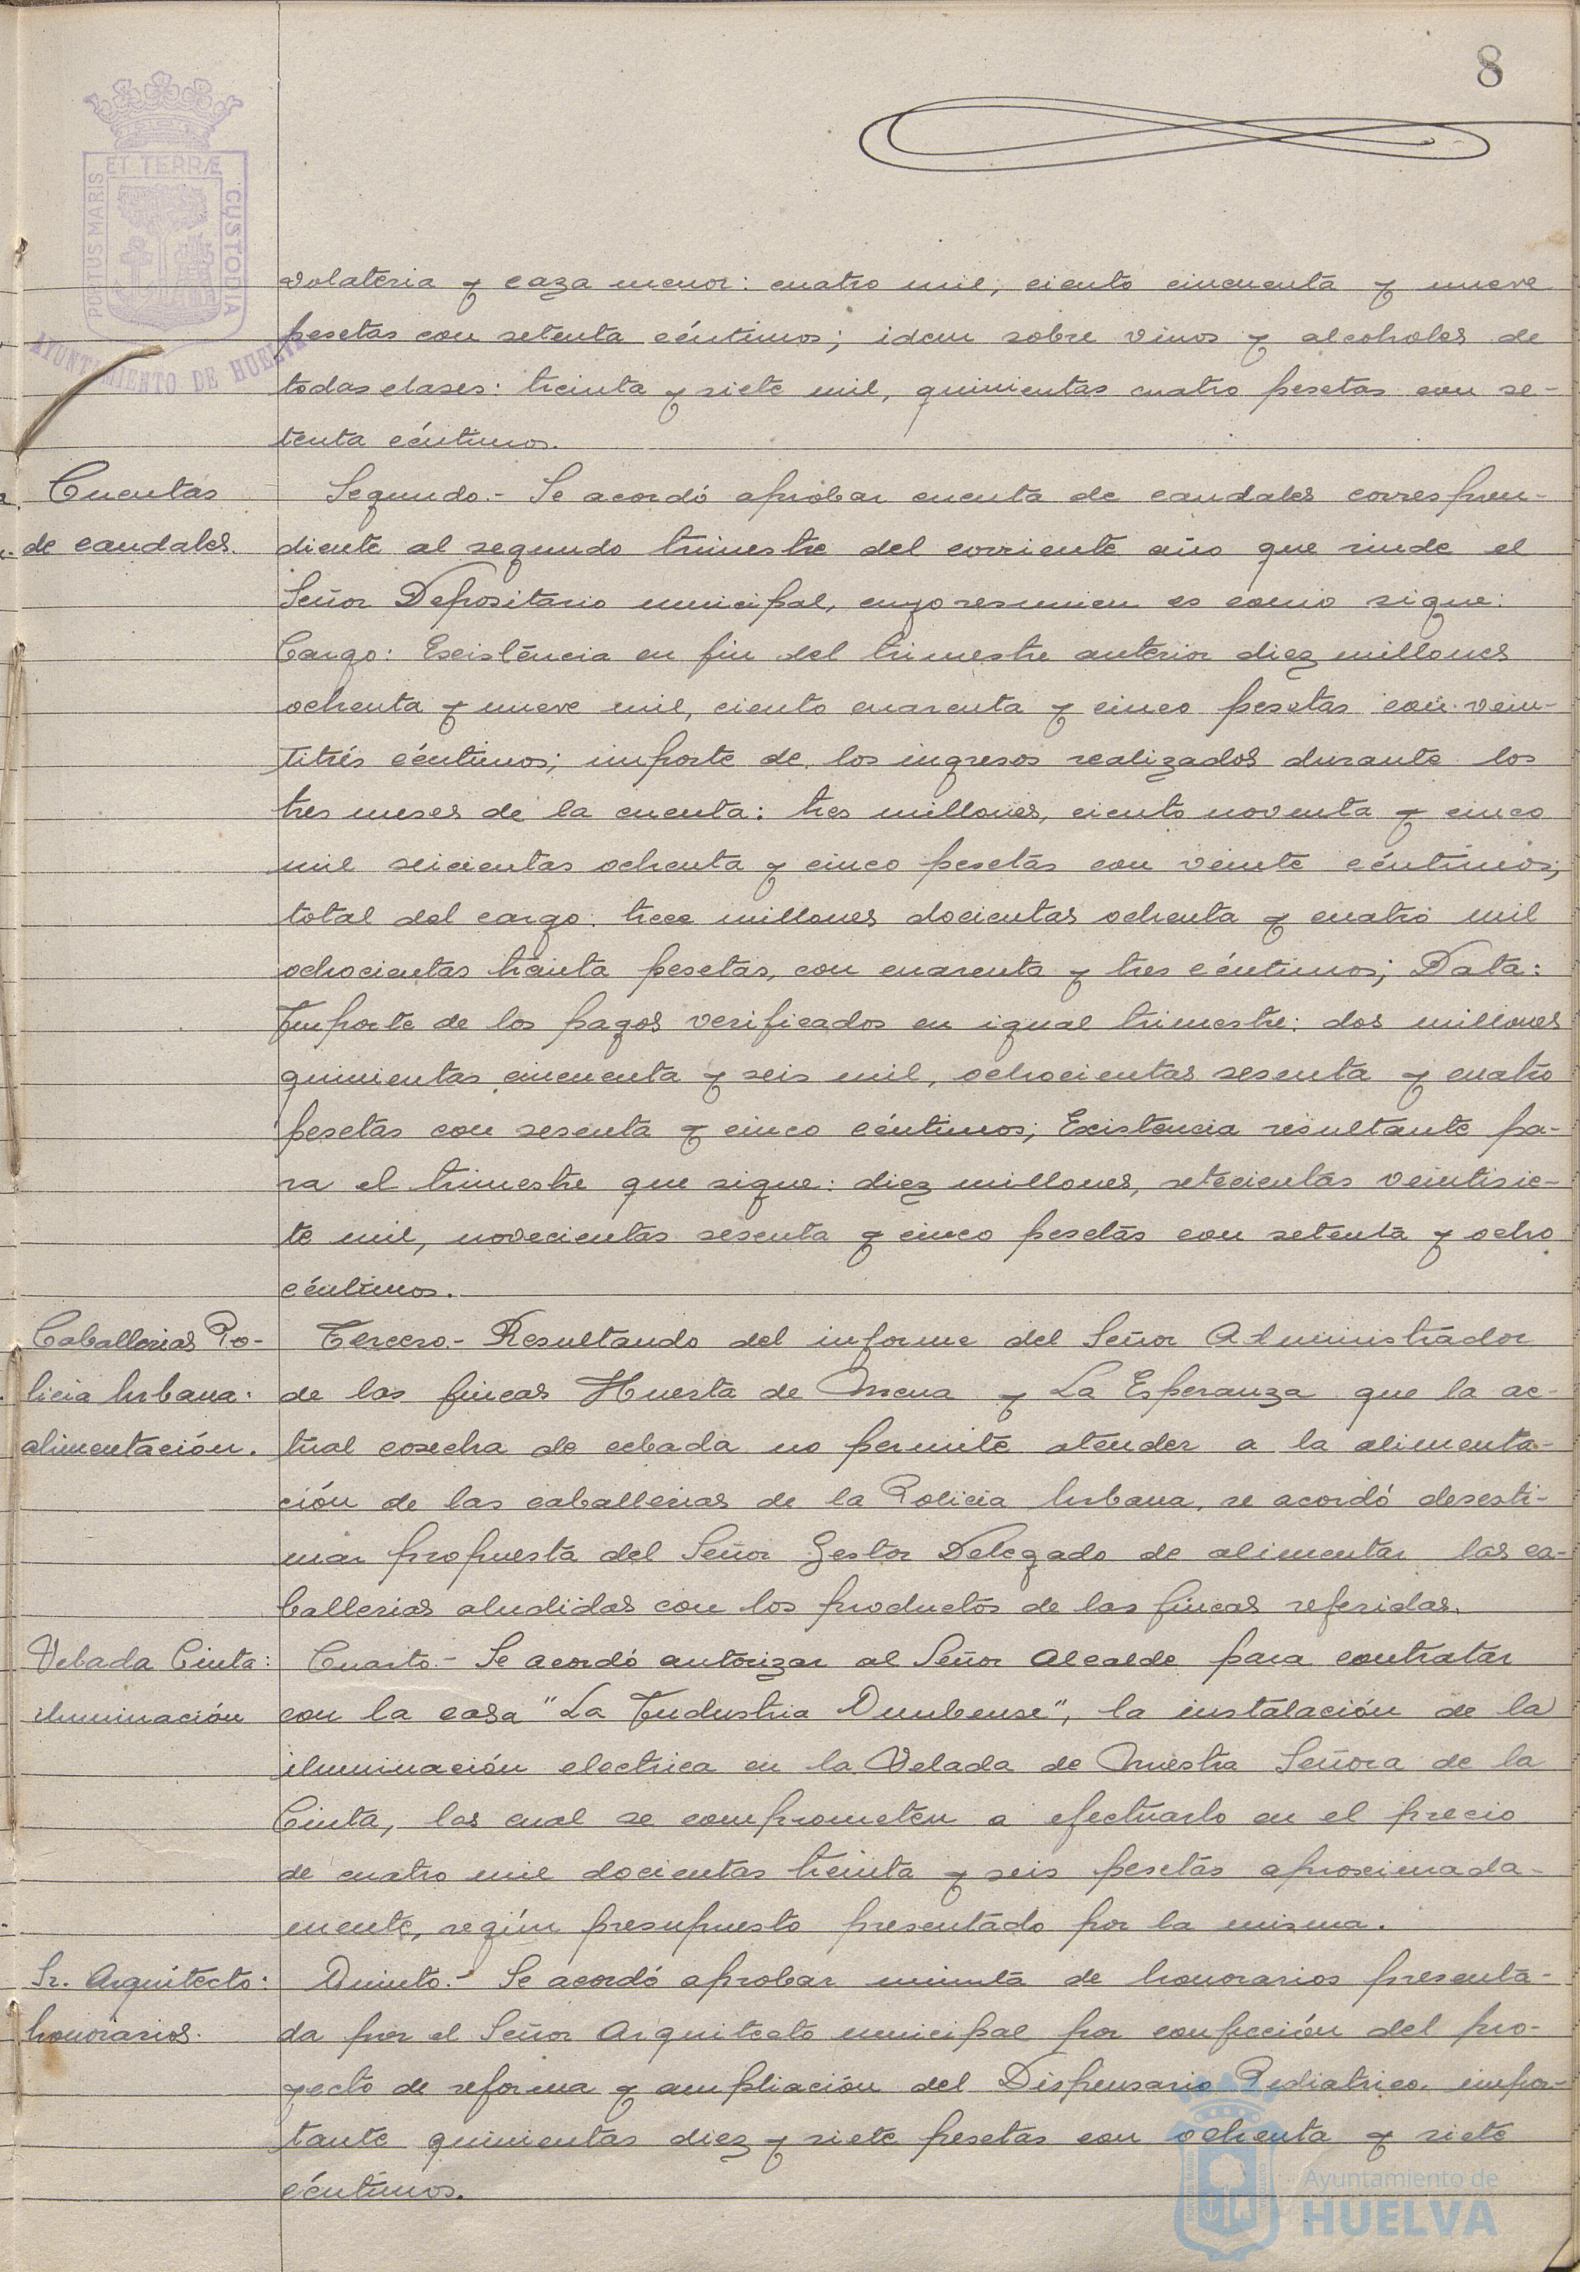 8
PORTUS MARIS ET TERRÆ CUSTODIA
AYUNTAMIENTO DE HUELVA
volateria y caza menor: cuatro mil, ciento cincuenta y nueve
pesetas con setenta céntimos; idem sobre vinos y alcoholes de
todas clases: treinta y siete mil, quinientas cuatro pesetas con se-
tenta céntimos.
Cuentas
de caudales.
Segundo.- Se acordó aprobar cuenta de caudales correspon-
diente al segundo trimestre del corriente año que rinde el
Señor Depositario municipal, cuyo resumen es como sigue:
Cargo: Existencia en fin del trimestre anterior diez millones
ochenta y nueve mil, ciento cuarenta y cinco pesetas con vein-
titrés céntimos; importe de los ingresos realizados durante los
tres meses de la cuenta: tres millones, ciento noventa y cinco
mil seicientas ochenta y cinco pesetas con veinte céntimos;
total del cargo: trece millones docientas ochenta y cuatro mil
ochocientas treinta pesetas, con cuarenta y tres céntimos; Data:
Importe de los pagos verificados en igual trimestre: dos millones
quinientas cincuenta y seis mil, ochocientas sesenta y cuatro
pesetas con sesenta y cinco céntimos; Existencia resultante pa-
ra el trimestre que sigue: diez millones, setecientas veintisie-
te mil, novecientas sesenta y cinco pesetas con setenta y ocho
céntimos.
Caballerias Po-
licia Urbana:
alimentación.
Tercero.- Resultando del informe del Señor Administrador
de las fincas Huerta de Mena y La Esperanza que la ac-
tual cosecha de cebada no permite atender a la alimenta-
ción de las caballerias de la Policia Urbana, se acordó desesti-
mar propuesta del Señor Gestor Delegado de alimentar las ca-
ballerias aludidas con los productos de las fincas referidas.
Velada Cinta:
iluminación
Cuarto.- Se acordó autorizar al Señor Alcalde para contratar
con la casa "La Industria Onubense", la instalación de la
iluminación electrica en la Velada de Nuestra Señora de la
Cinta, las cual se comprometen a efectuarlo en el precio
de cuatro mil docientas treinta y seis pesetas aproximada-
mente, según presupuesto presentado por la misma.
Sr. Arquitecto:
honorarios.
Quinto.- Se acordó aprobar minuta de honorarios presenta-
da por el Señor Arquitecto municipal por confección del pro-
yecto de reforma y ampliación del Dispensario Pediatrico, impor-
tante quinientas diez y siete pesetas con ochenta y siete
céntimos.
Ayuntamiento de
HUELVA